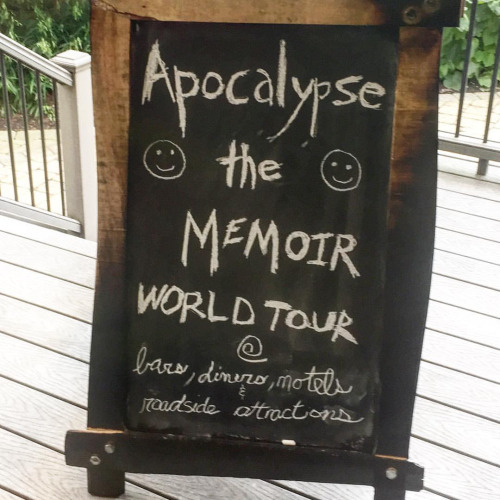 Apocalypse
the
MEMOIR
WORLD TOUR
@
bars, diners, motels
&
roadside attractions